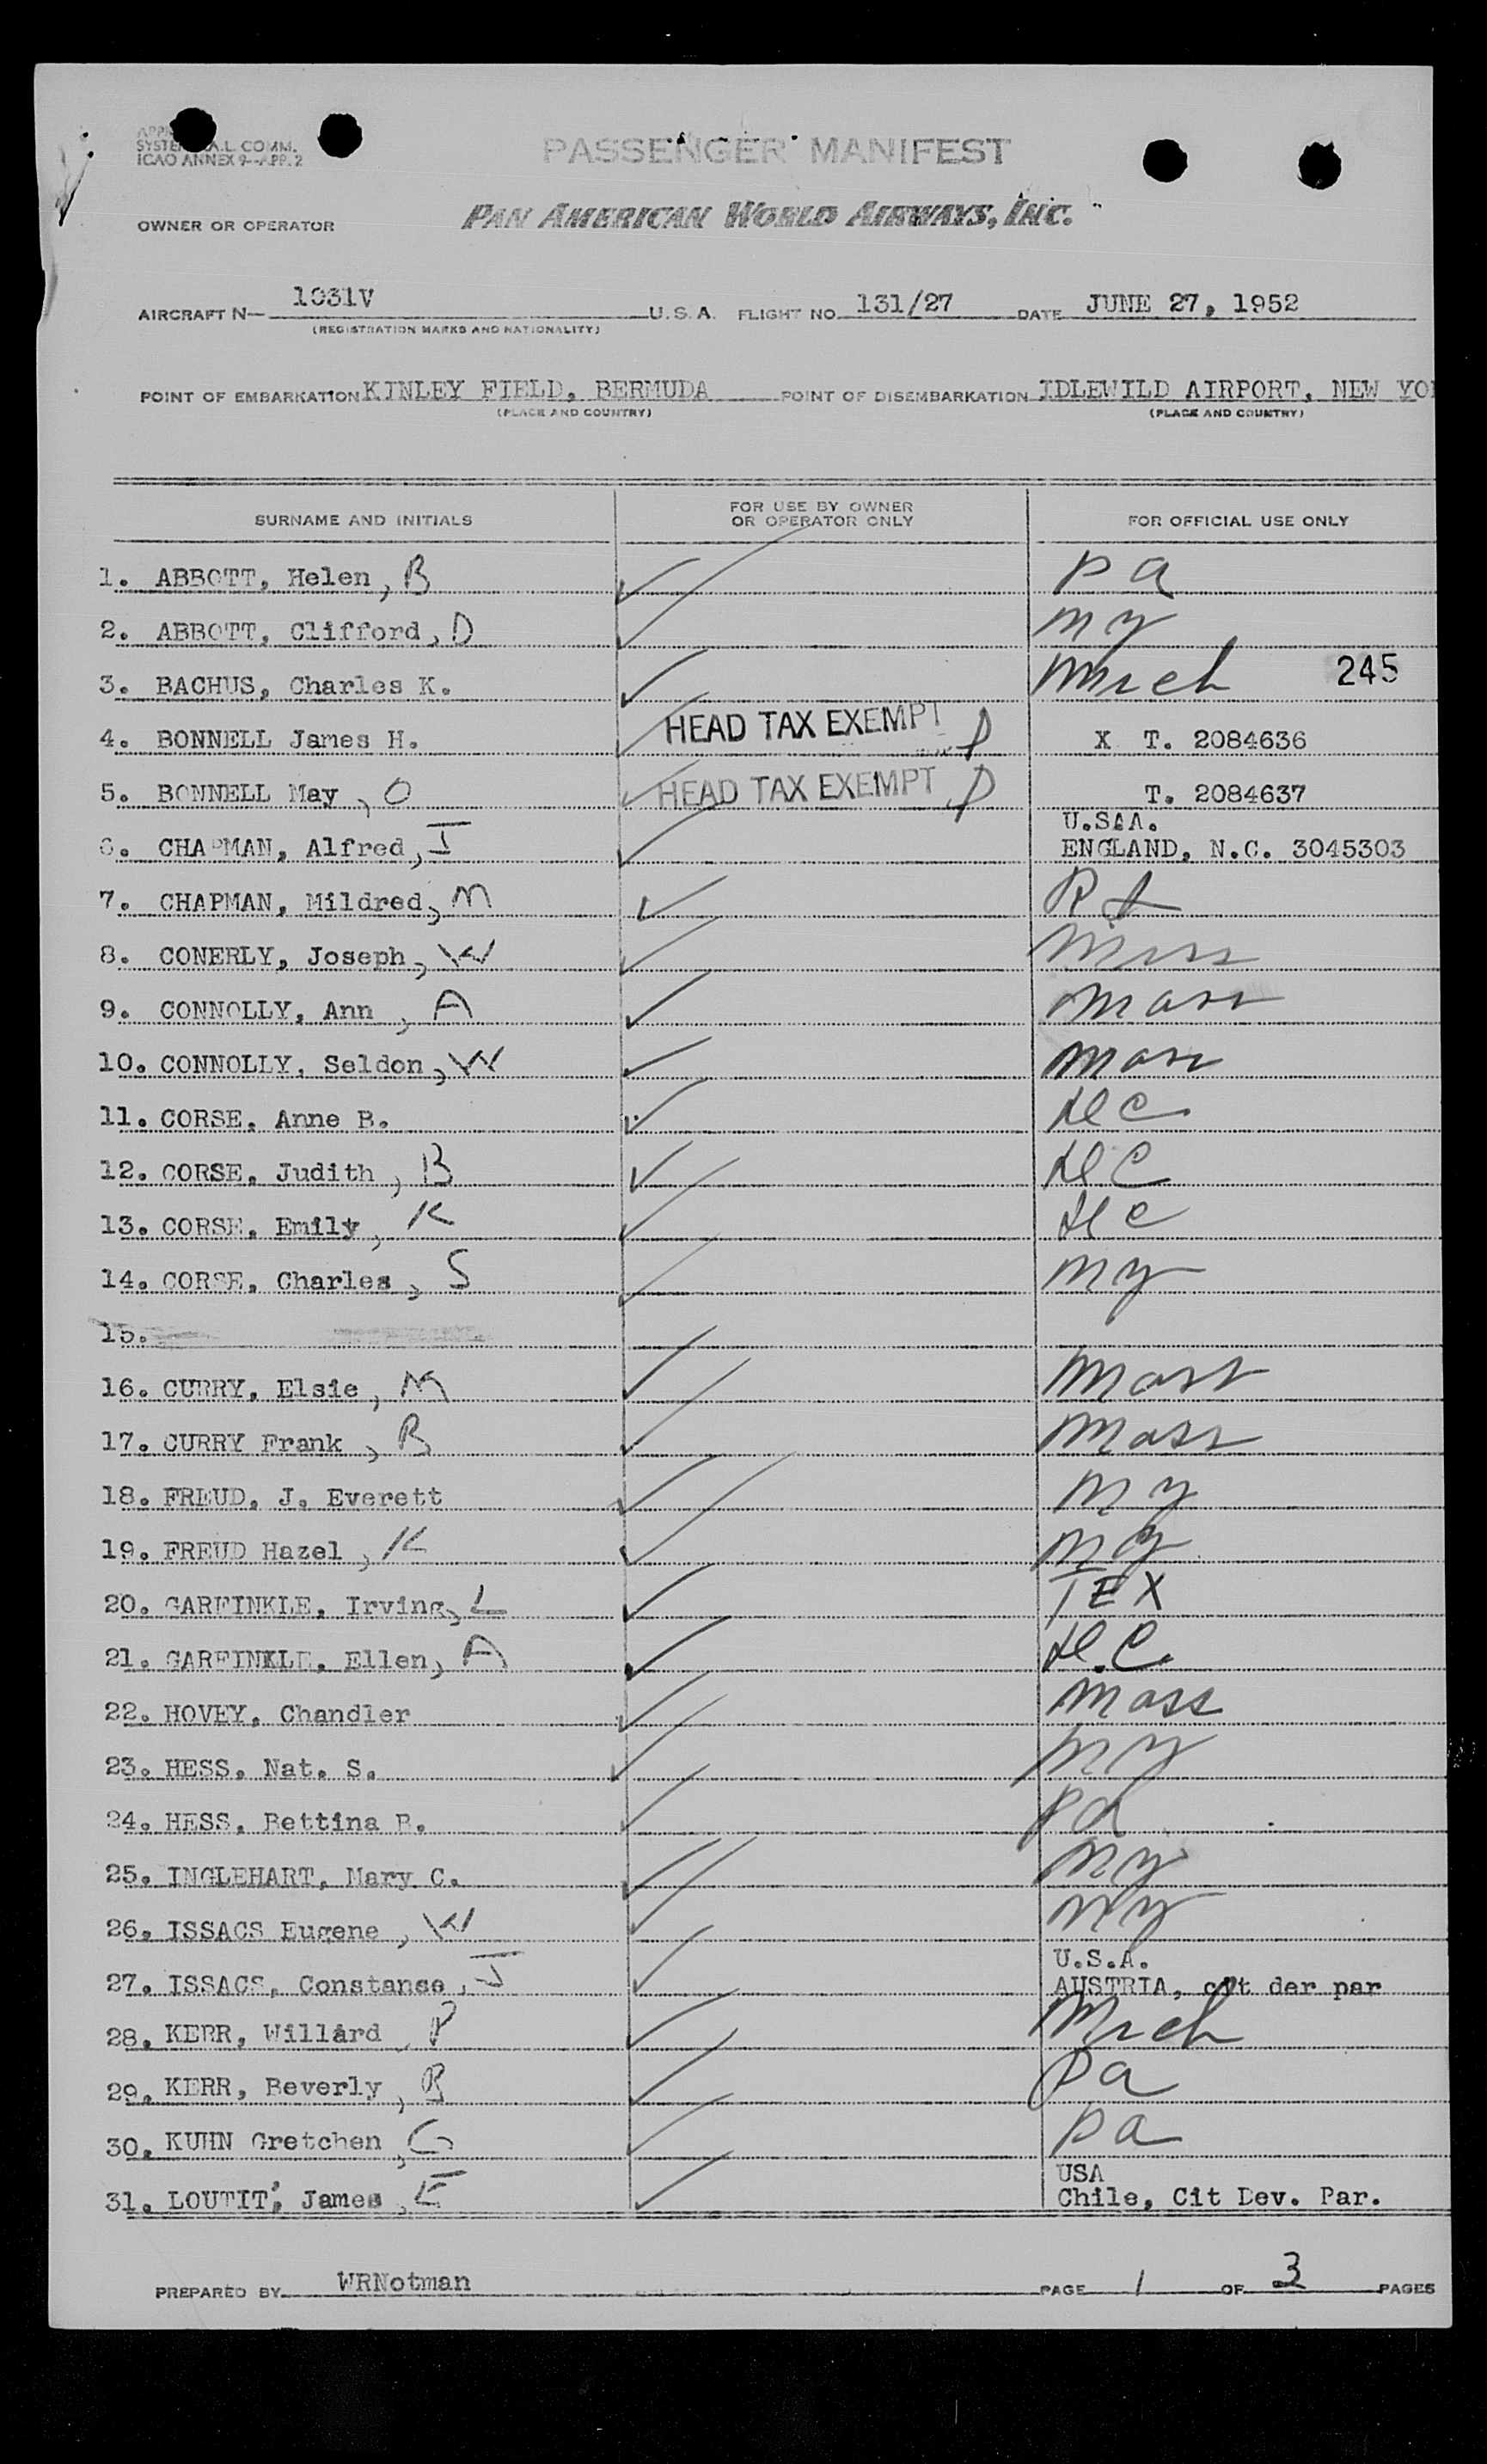 SYSTEM A.L. COMM.
ICAO ANNEX 9-APP. 2
PASSENGER MANIFEST
OWNER OR OPERATOR PAN AMERICAN WORLD AIRWAYS, INC.
AIRCRAFT N— 1031V U.S.A. FLIGHT NO. 131/27 DATE JUNE 27, 1952
(REGISTRATION MARKS AND NATIONALITY)
POINT OF EMBARKATION KINLEY FIELD, BERMUDA POINT OF DISEMBARKATION IDLEWILD AIRPORT, NEW YO
(PLACE AND COUNTRY) (PLACE AND COUNTRY)
SURNAME AND INITIALS FOR USE BY OWNER OR OPERATOR ONLY FOR OFFICIAL USE ONLY
1. ABBOTT, Helen, B Pa
2. ABBOTT, Clifford, D ny
3. BACHUS, Charles K. Mich 245
4. BONNELL James H. HEAD TAX EXEMPT X T. 2084636
5. BONNELL May, O HEAD TAX EXEMPT T. 2084637
U.S.A.
6. CHAPMAN, Alfred, J ENGLAND, N.C. 3045303
7. CHAPMAN, Mildred, M RI
8. CONERLY, Joseph, W Miss
9. CONNOLLY, Ann, A Mass
10. CONNOLLY, Seldon, W Mass
11. CORSE, Anne B. DC
12. CORSE, Judith, B DC
13. CORSE, Emily, K DC
14. CORSE, Charles, S ny
15.
16. CURRY, Elsie, M Mass
17. CURRY Frank, B Mass
18. FREUD, J. Everett ny
19. FREUD Hazel, K ny
20. GARFINKLE, Irving, L TEX
21. GARFINKLE, Ellen, A D.C.
22. HOVEY, Chandler Mass
23. HESS, Nat. S. ny
24. HESS, Bettina B. Pa
25. INGLEHART, Mary C. ny
26. ISSACS Eugene, W ny
U.S.A.
27. ISSACS, Constance, J AUSTRIA, cit der par
28. KERR, Willard, P Mich
29. KERR, Beverly, B Pa
30. KUHN Gretchen, G Pa
USA
31. LOUTIT, James, E Chile, Cit Dev. Par.
PREPARED BY WRNotman PAGE 1 OF 3 PAGES